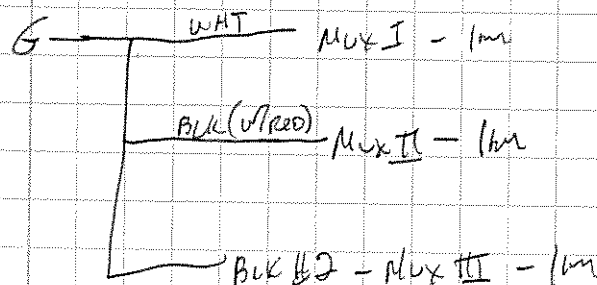 G WHT MUX I -
BLK (W/RED) MUX II -
BLK #2 - MUX III -